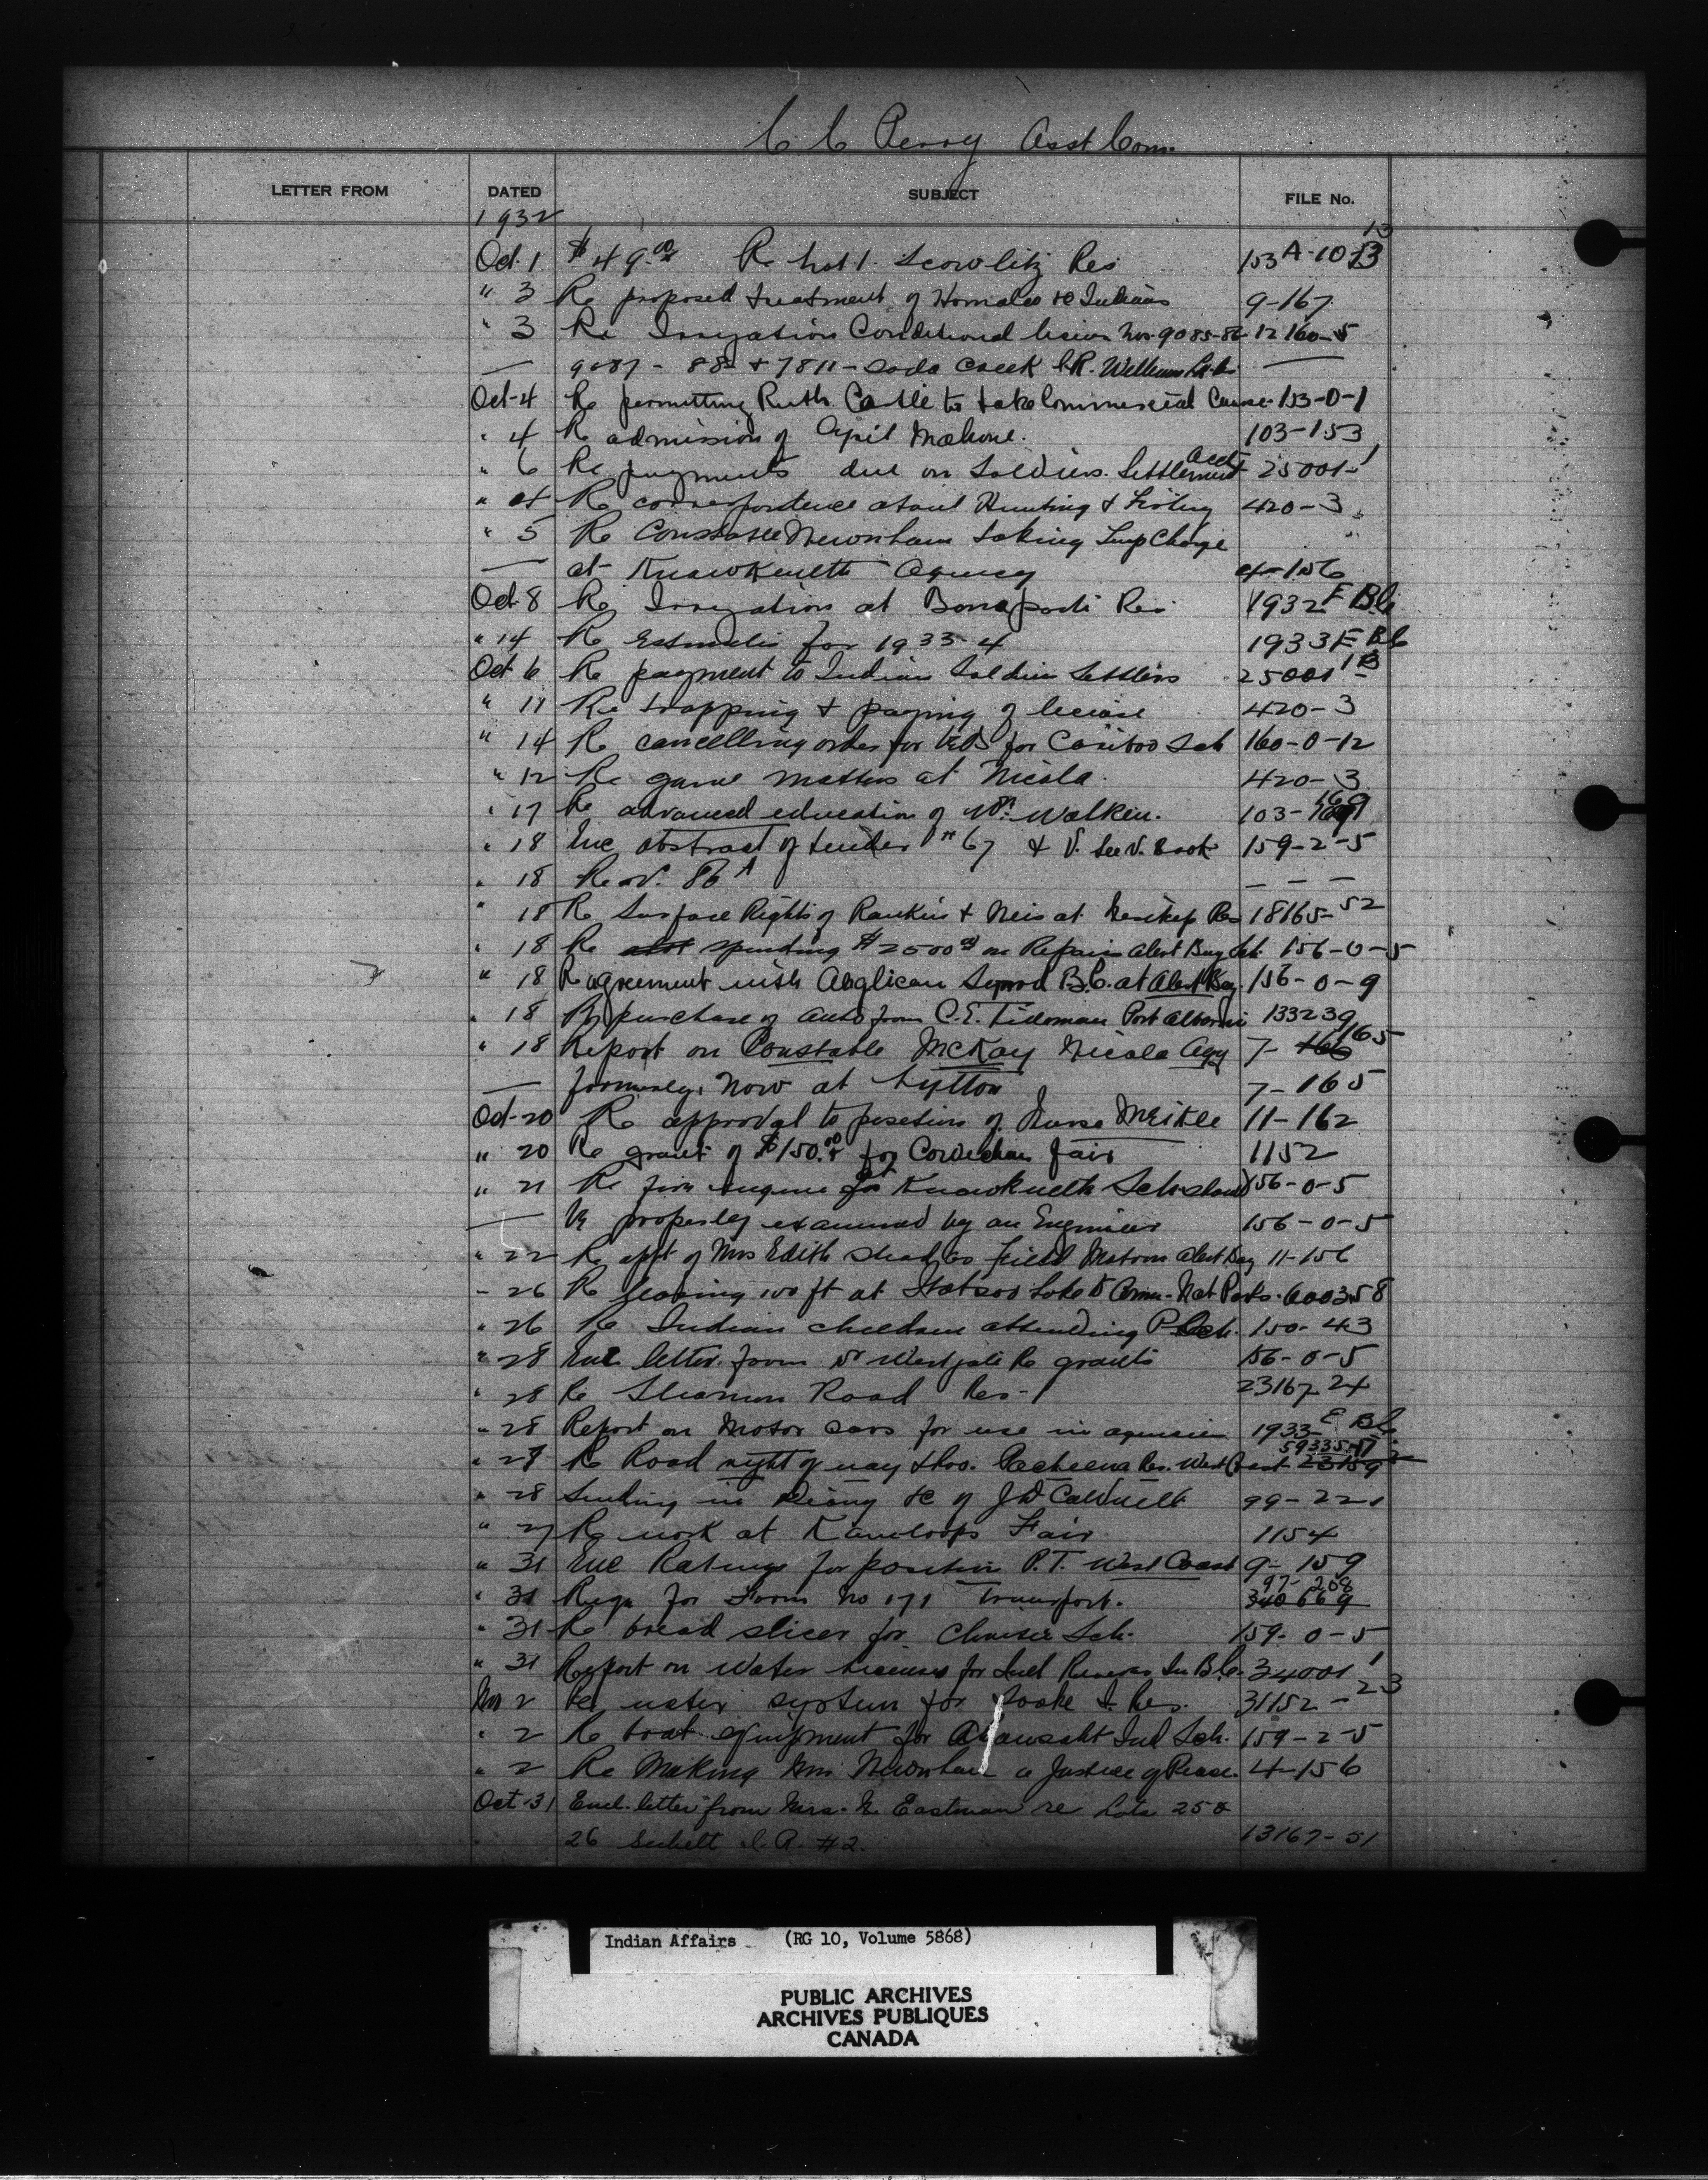 C C Perry Asst Com.
LETTER FROM DATED SUBJECT FILE No.
1932
Oct. 1 $49.00 Re Lot 1. Scowlitz Res 153A-10 13
" 3 Re proposed treatment of Homalco Indians 9-167
" 3 Re Irrigation Conditional licien Nos. 9085-86- 12 160-5
— 9087 - 88 + 7811 - Soda Creek I.R. Williams Lake —
Oct-4 Re permitting Ruth Castle to take Commercial Course. 153-0-1
" 4 Re admission of April Malone. 103-153
" 6 Re payments due on Soldiers. Settlement acct 25001-1
" 4 Re correspondence about Hunting & Fishing 420-3
" 5 Re Constable Newnham taking Temp Charge
— at Kwawkewlth Agency 4-156
Oct-8 Re Irrigation at Bonaparte Res 1932 E BC
" 14 Re Estimates for 1933-4 1933 E BC
Oct 6 Re payment to Indian Soldier Settlers 25001-1
" 11 Re trapping & paying of license 420-3
" 14 Re cancelling order for for Cariboo Sch 160-0-12
" 12 Re game matters at Nicola. 420-3
" 17 Re advanced education of Wm. Walken. 103-169
" 18 Enc abstract of tender 67 & V. 159-2-5
" 18 Re ov. 86A — — —
" 18 Re Surface Rights of Rankin & Neis at Res 18165-52
" 18 Re spending $2500 on Repairs Alert Bay Sch. 156-0-5
" 18 Re agreement with Anglican Synod B.C. at Alert Bay. 156-0-9
" 18 Re purchase of auto from C.E. Tideman Port Alberni 133239
" 18 Report on Constable McKay Nicola Agy 7-165
— formerly, now at Lytton 7-165
Oct-20 Re approval to position of Nurse Meikle 11-162
" 20 Re grant of $150.00 for Cowichan fair 1152
" 21 Re fire engine for Kwawkewlth Sch should 156-0-5
— be properly examined by an Engineer 156-0-5
" 22 Re appt of Mrs Edith as Field Matron Alert Bay 11-156
" 26 Re leasing 100 ft at Lake to Comm. Nat Parks. 600358
" 26 Re Indian children attending P Sch. 150-43
" 28 Enc letter from Dr Westgate Re grants 156-0-5
" 28 Re Sliammon Road Res-1 23167-24
" 28 Report on Motor cars for use in agencies 1933 E BC
" 29 Re Road right of way thro. Pacheena Res. West Coast 59335-17
" 28 Sending in Diary &c of J D Caldwell 99-221
" 27 Re work at Kamloops Fair 1154
" 31 Enc Ratings for position P.T. West Coast 9-159
" 31 Requ for Form No 171 Transport. 97-208
" 31 Re bread slicer for Christie Sch. 159-0-5
" 31 Report on Water Licenses for Ind Reserves In B.C. 34001-1
Nov 2 Re water system for Sooke I. Res. 31152-23
" 2 Re boat equipment for Ahousaht Ind Sch. 159-2-5
" 2 Re Making Mr Newnham a Justice of Peace. 4-156
Oct-31 Encl. letter from Mrs. Eastman re Lots 25 &
26 Sechelt I.R. #2. 13167-51
Indian Affairs (RG 10, Volume 5868)
PUBLIC ARCHIVES
ARCHIVES PUBLIQUES
CANADA